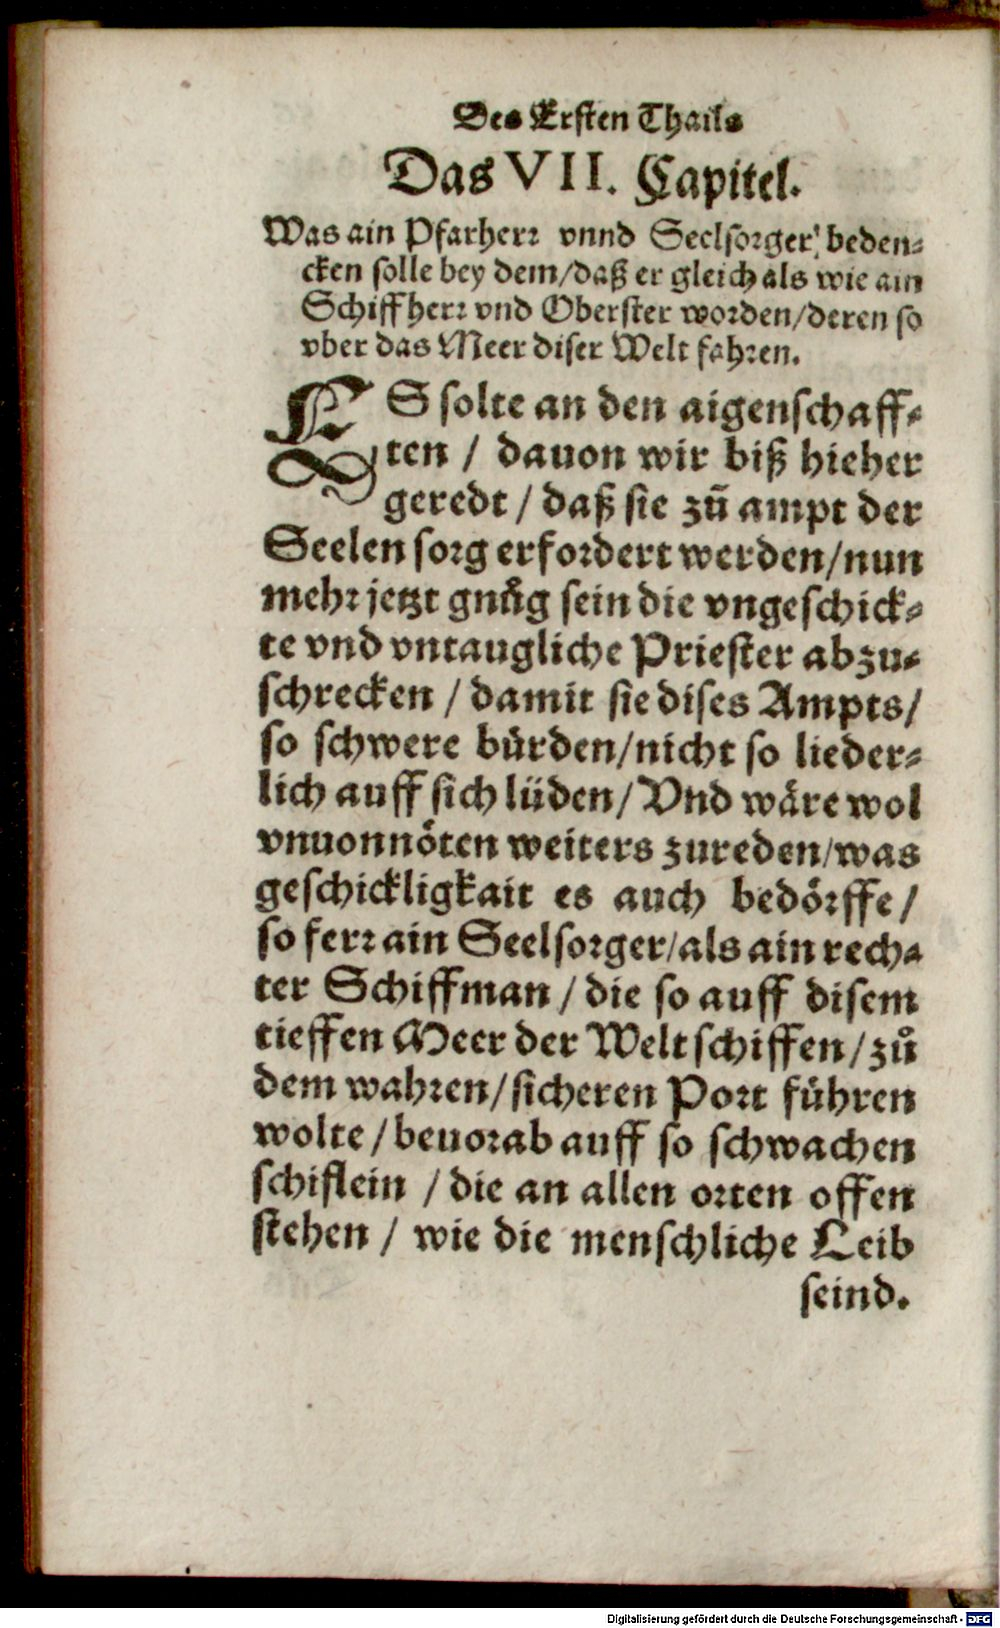 Des Ersten Thails
Das VII. Capitel.
Was ain Pfarherr vnnd Seelsorger, beden-
cken solle bey dem/daß er gleich als wie ain
Schiffherr vnd Oberster worden/deren so
vber das Meer diser Welt fahren.
ES solte an den aigenschaff-
ten / dauon wir biß hieher
geredt / daß sie zũ ampt der
Seelen sorg erfordert werden/nun
mehr jetzt gnůg sein die vngeschick-
te vnd vntaugliche Priester abzu-
schrecken / damit sie dises Ampts/
so schwere bürden/nicht so lieder-
lich auff sich lüden/ Vnd wäre wol
vnuonnöten weiters zureden/was
geschickligkait es auch bedörffe/
so ferr ain Seelsorger/als ain rech-
ter Schiffman / die so auff disem
tieffen Meer der Welt schiffen/zů
dem wahren/sicheren Port führen
wolte/beuorab auff so schwachen
schiflein / die an allen orten offen
stehen / wie die menschliche Leib
seind.
Digitalisierung gefördert durch die Deutsche Forschungsgemeinschaft - DFG